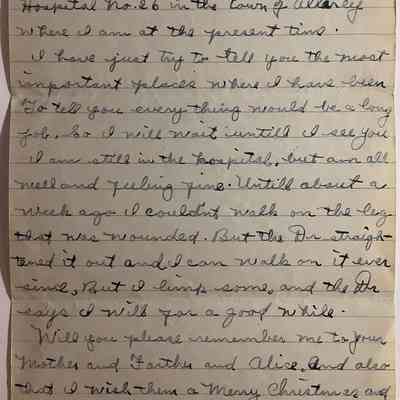 Hospital No. 26 in the town of Allerey
where I am at the present time.
I have just try to tell you the most
important places where I have been
To tell you every thing would be a long
job. So I will wait untill I see you
I am still in the hospital, but am all
well and feeling fine. Untill about a
week ago I couldn't walk on the leg
that was wounded. But the Dr straigh-
tened it out and I can walk on it ever
since, But I limp some, and the Dr
says I will for a good while.
Will you please remember me to your
Mother and Farther and Alice. And also
that I wish them a Merry Christmas and